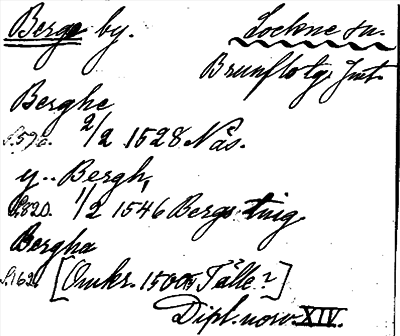 Berge by. Lockne sn.
Brunflo tg. Jmt.
Berghe
S. 570. 2/2 1528 Nås.
y.. Bergh,
S. 520. 1/2 1546 Bergs ting.
Bergha
S. 162. [Omkr. 1500, Tälle?]
Dipl. norv. XIV.